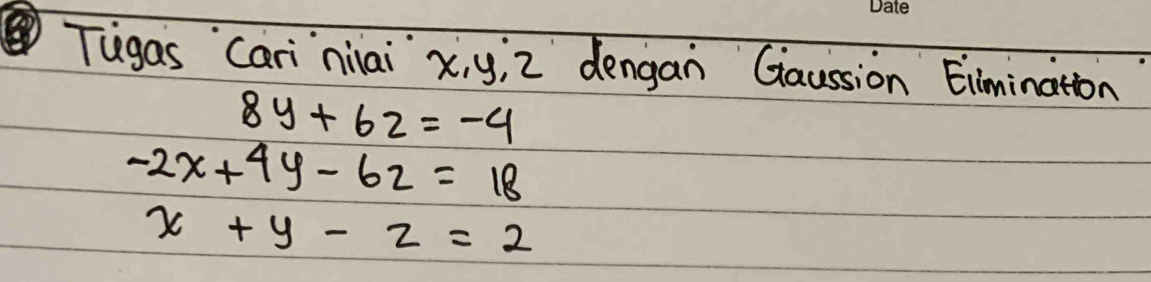 Date
Tugas Cari nilai x,y,z dengan Gaussion Elimination
8y + 6z = -4
-2x + 4y - 6z = 18
x + y - z = 2